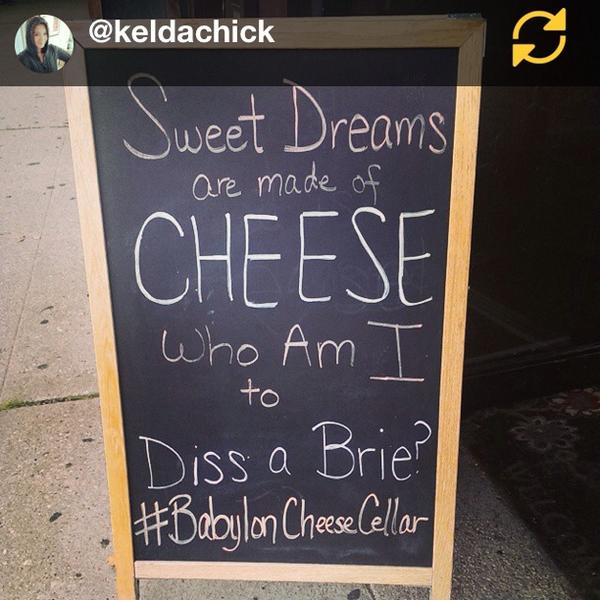 @keldachick
Sweet Dreams
are made of
CHEESE
Who Am I
to
Diss a Brie?
#BabylonCheeseCellar